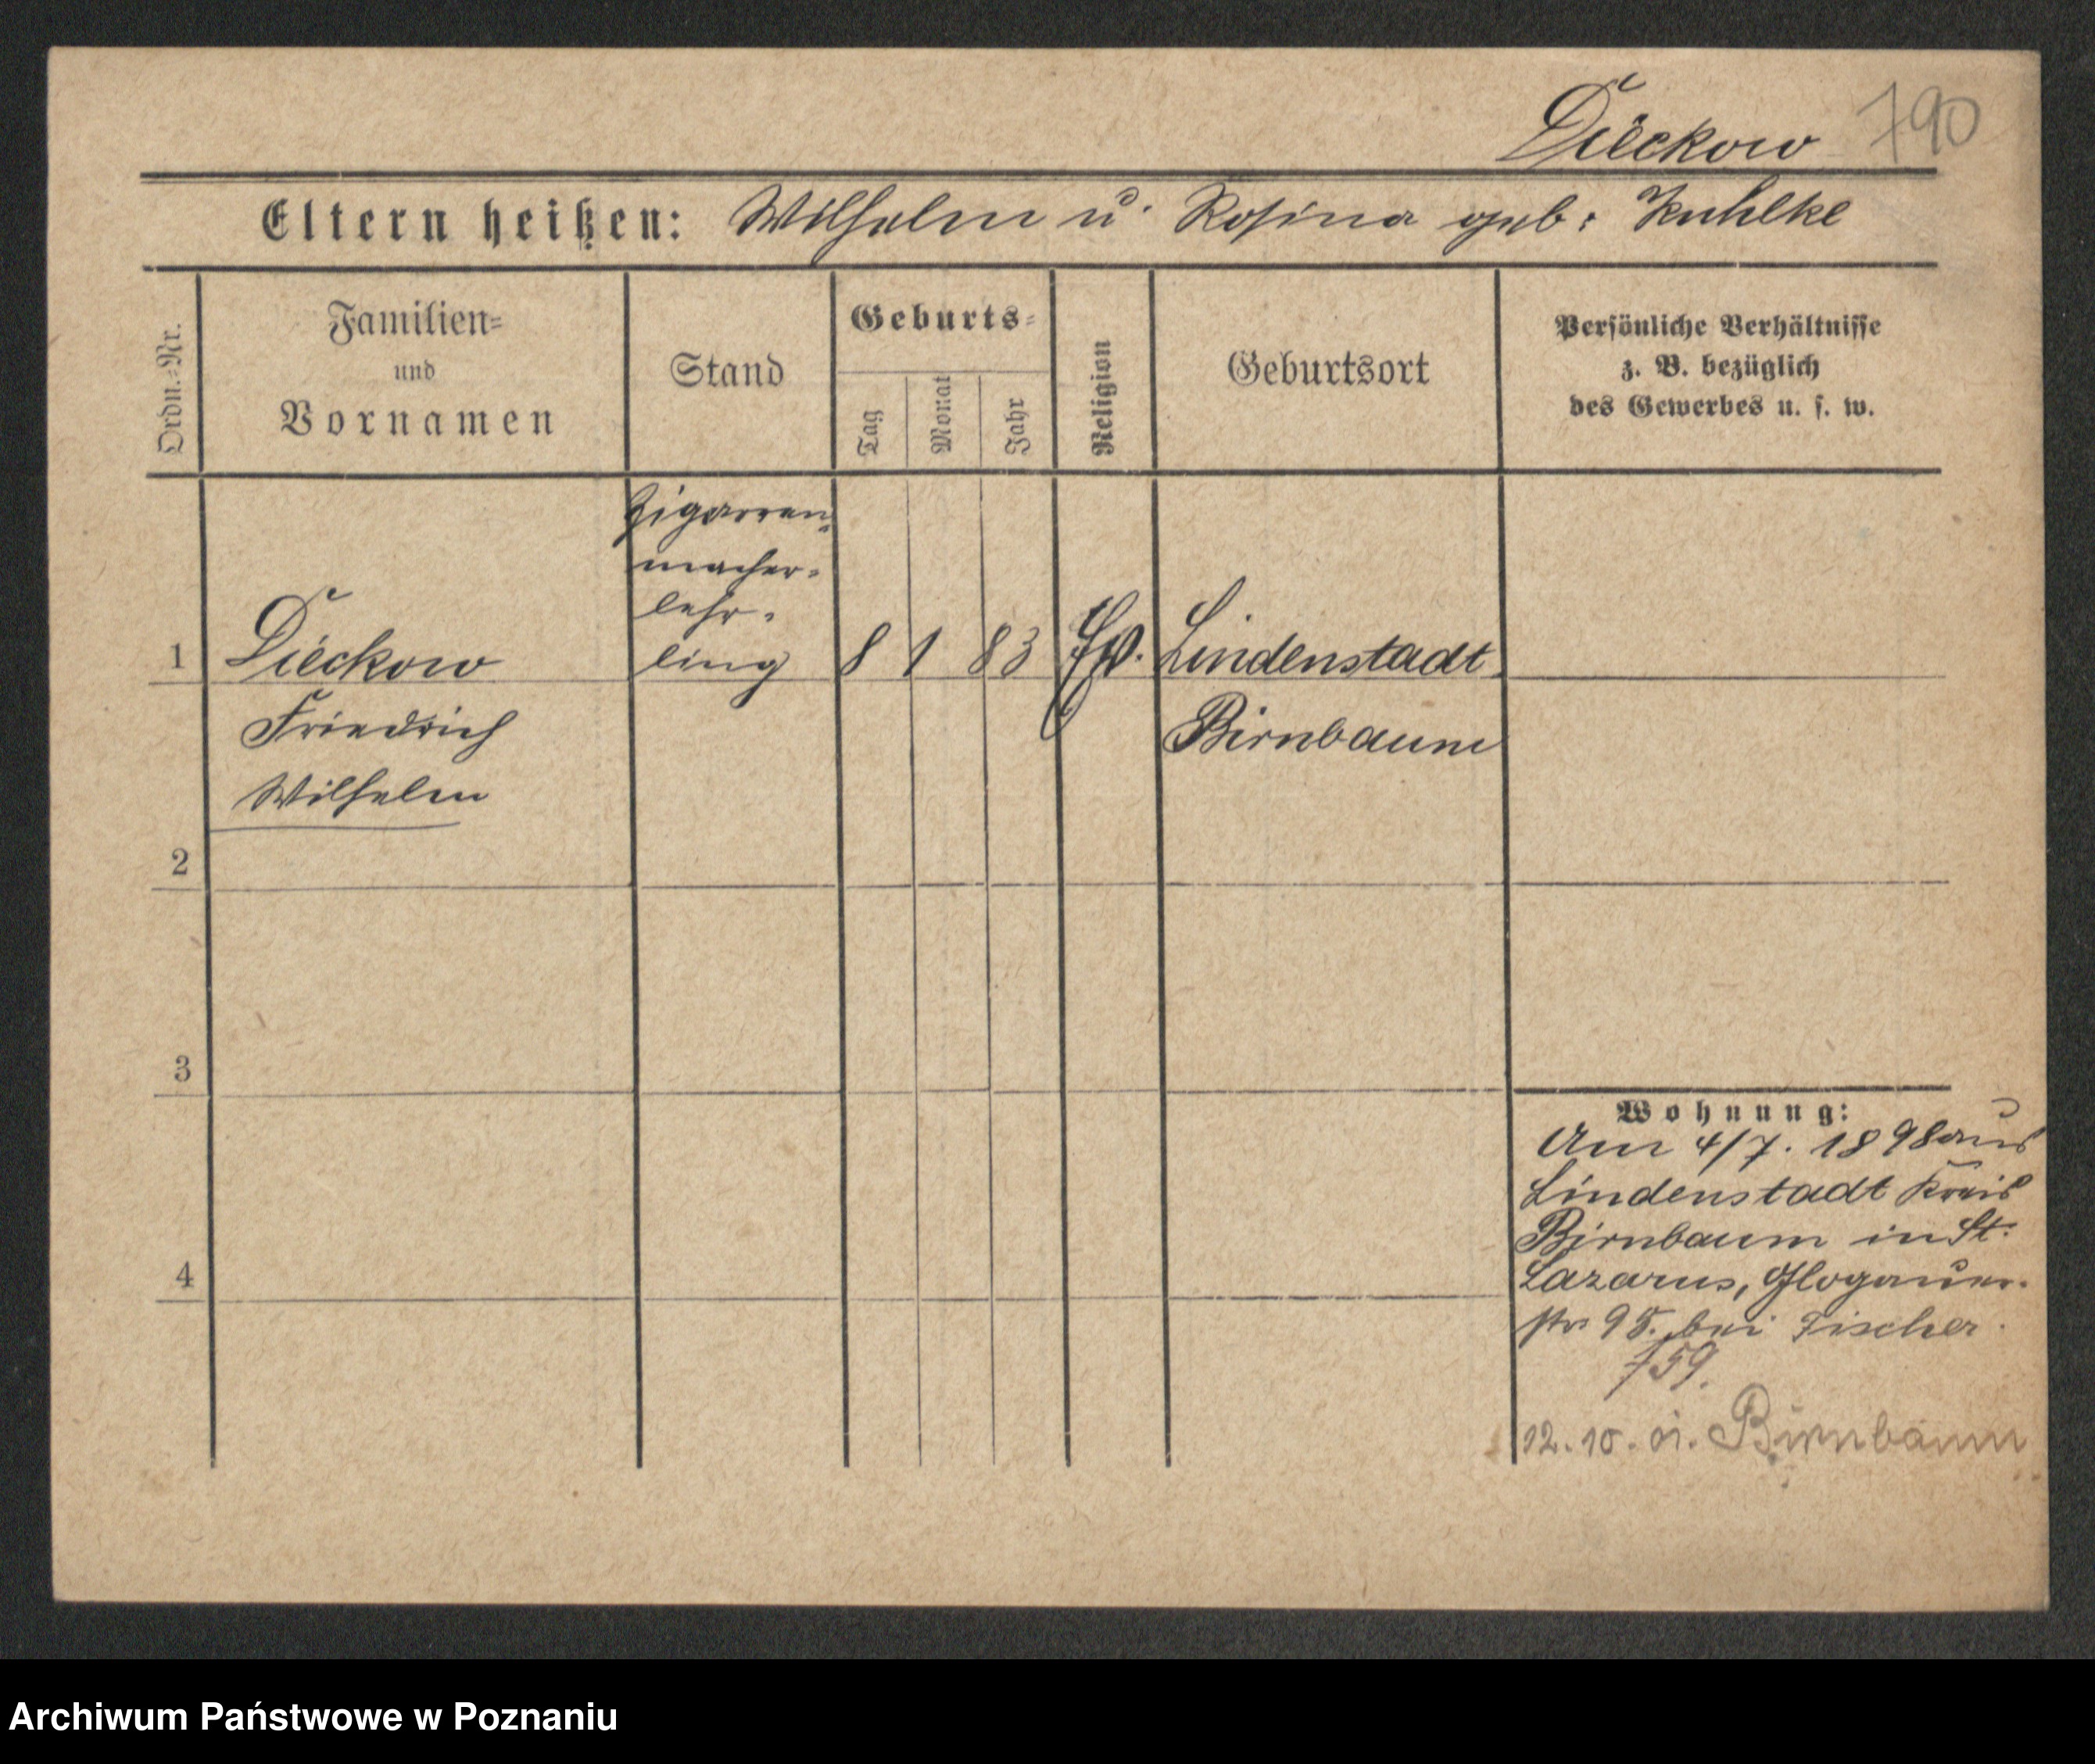 Dieckow 790
Eltern heißen: Wilhelm u. Rosina geb: Kuhlke
Ordn.=Nr.
Familien=
und
Vornamen
Stand
Geburts=
Tag
Monat
Jahr
Religion
Geburtsort
Persönliche Verhältnisse
z. B. bezüglich
des Gewerbes u. s. w.
1
Dieckow
Friedrich
Wilhelm
Zigarren=
macher=
lehr=
ling
8 1 83 Ev.
Lindenstadt
Birnbaum
2
3
4
Wohnung:
Am 4/7. 1898 aus
Lindenstadt Kreis
Birnbaum in St.
Lazarus, Glogauer=
str 95. bei Fischer.
759.
12.10.01. Birnbaum
Archiwum Państwowe w Poznaniu